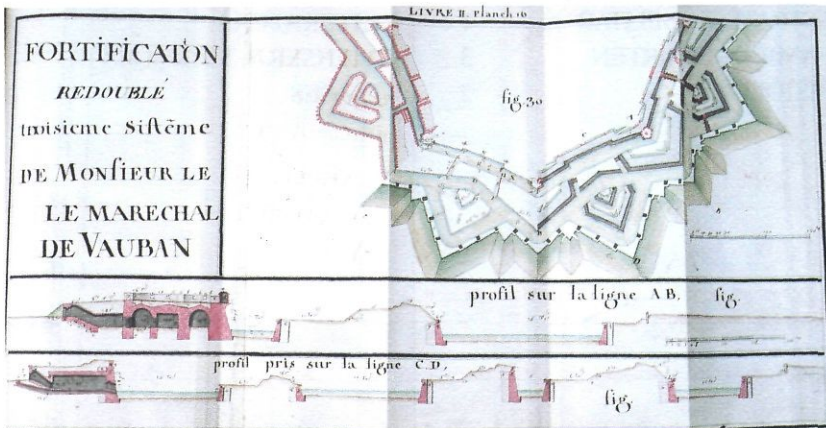 LIVRE II. Planch 16
FORTIFICATON
REDOUBLÉ
troisieme Sistême
DE Monsieur LE
LE MARECHAL
DE VAUBAN
fig. 30
profil sur la ligne A B. fig.
profil pris sur la ligne C.D.
fig.